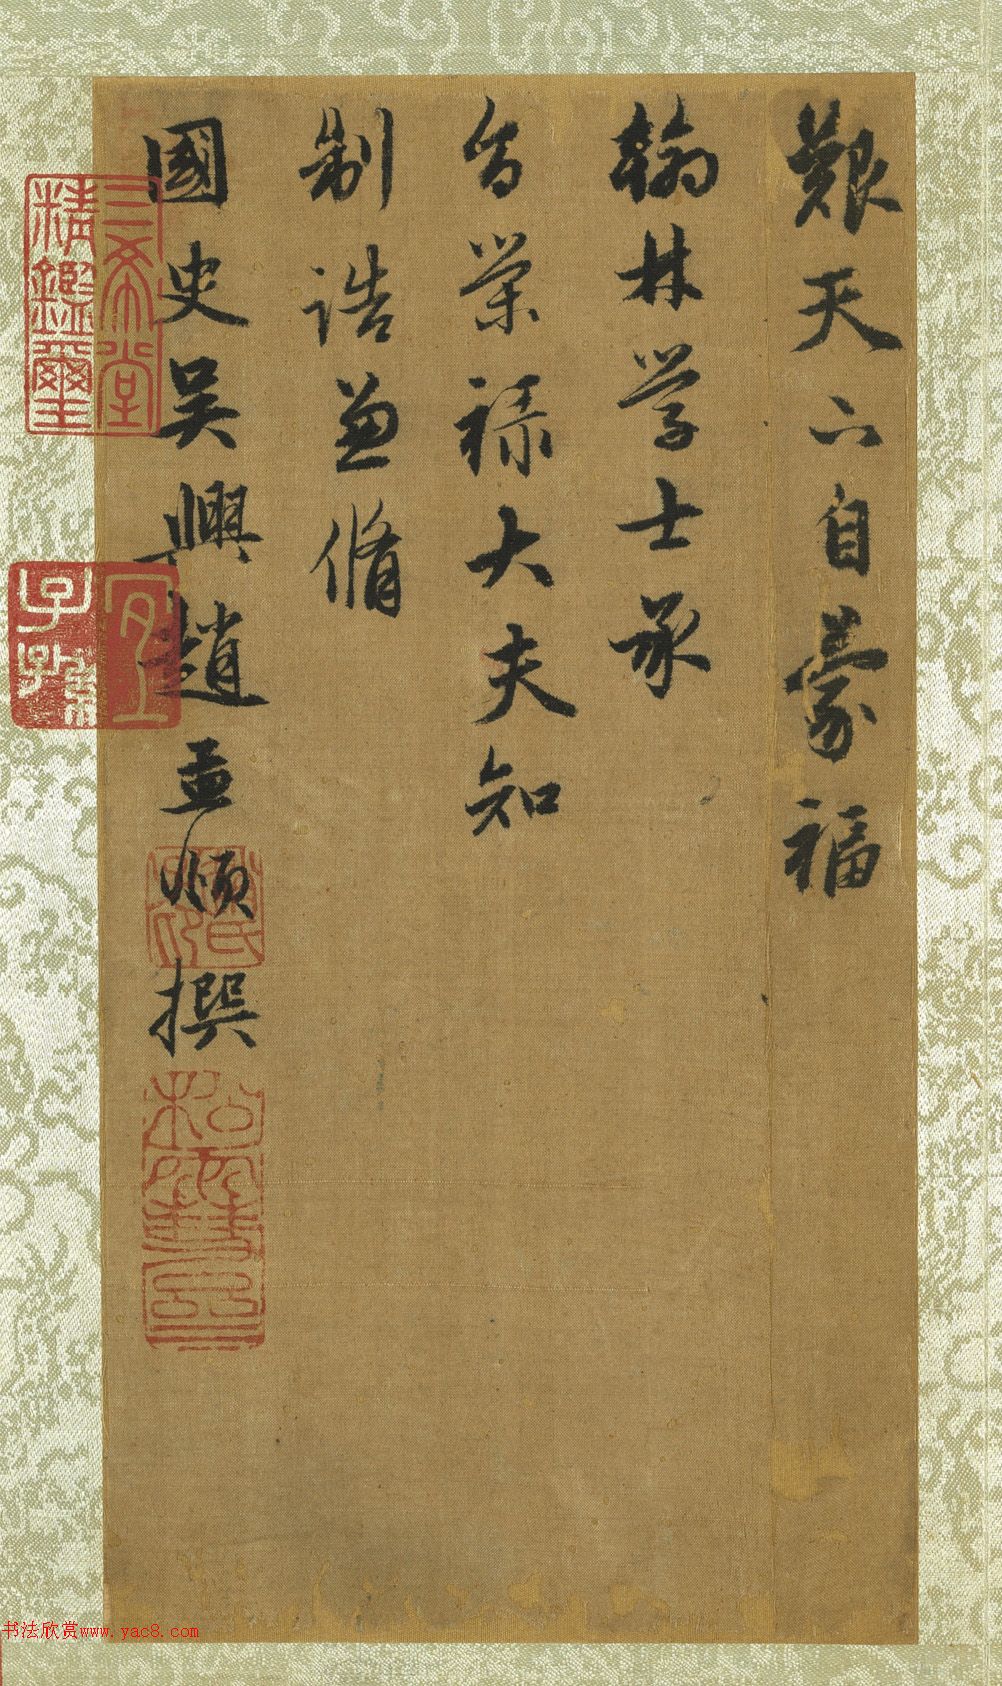 艱天亦自蒙福
翰林學士承
旨榮祿大夫知
制誥兼脩
國史吳興趙孟頫撰
三希堂
精鑑璽
宜子孫
趙氏
松雪齋
书法欣赏www.yac8.com